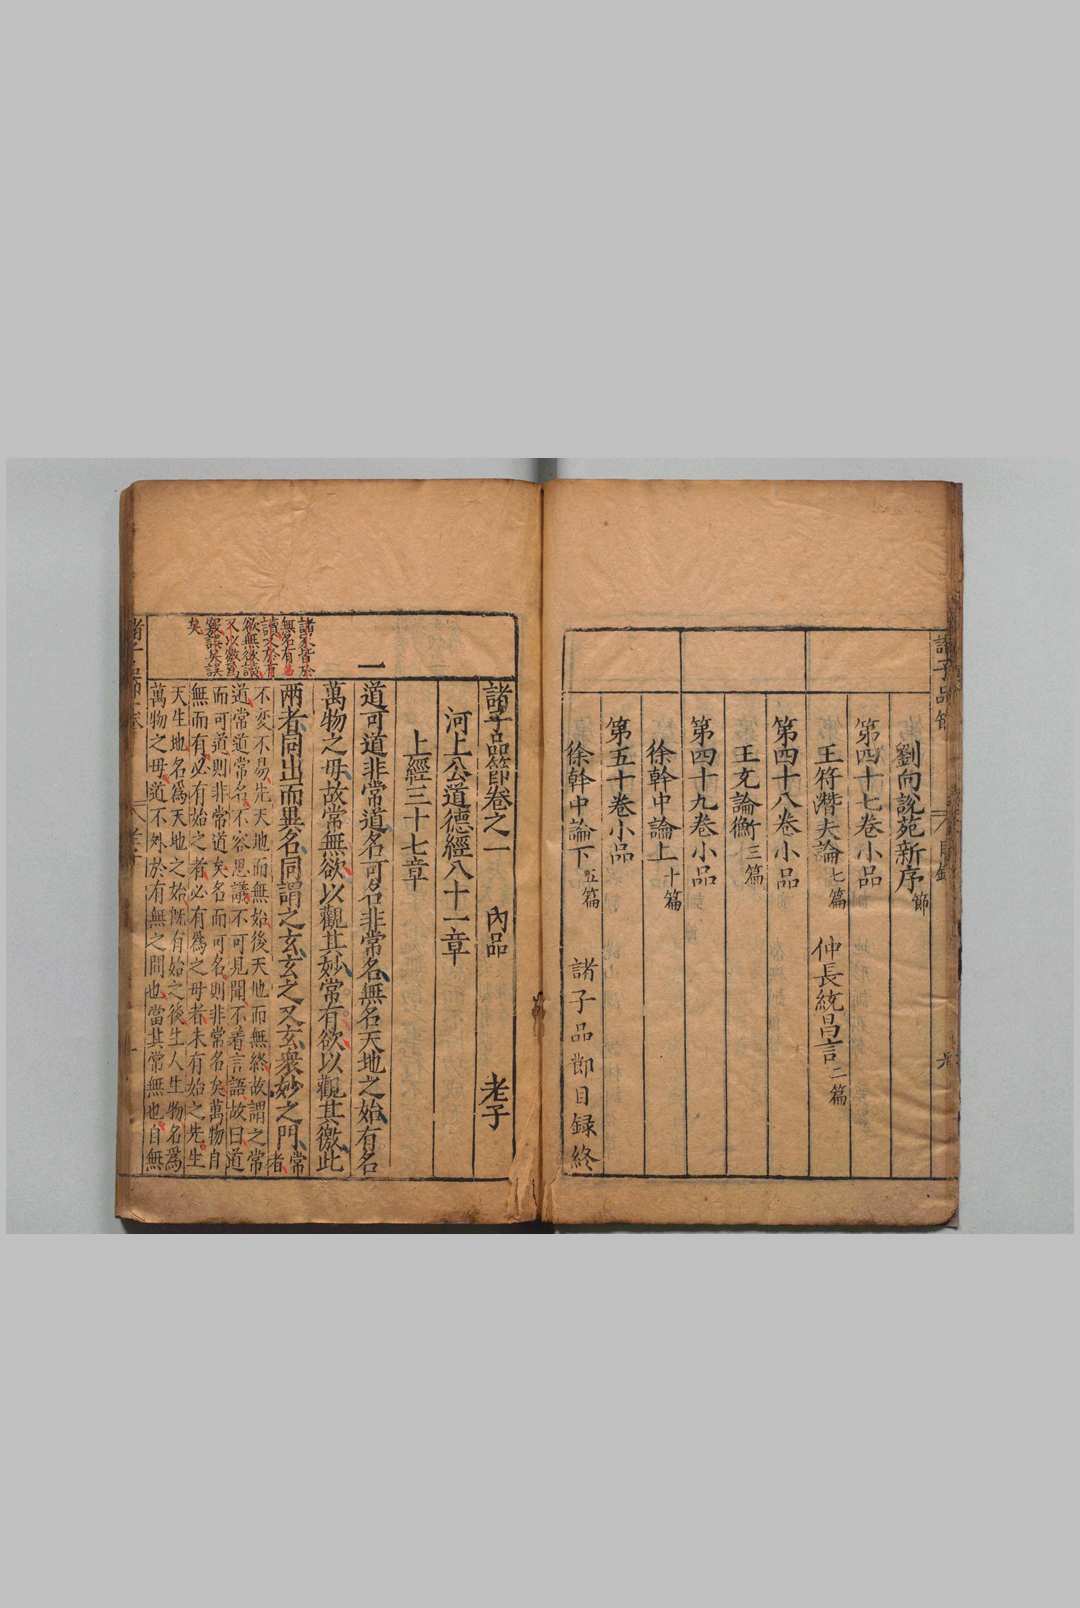 諸子品節
目錄
劉向說苑新序節
第四十七卷小品
王符潛夫論七篇 仲長統昌言二篇
第四十八卷小品
王充論衡三篇
第四十九卷小品
徐幹中論上十篇
第五十卷小品
徐幹中論下五篇 諸子品節目録終
諸子品節卷之一 內品 老子
河上公道德經八十一章
上經三十七章
一
道可道非常道名可名非常名無名天地之始有名
萬物之母故常無欲以觀其妙常有欲以觀其徼此
兩者同出而異名同謂之玄玄之又玄衆妙之門常者
不變不易先天地而無始後天地而無終故謂之常
道常道常名不容思議不可見聞不着言語故曰道
而可道則非常道矣名而可名則非常名矣萬物自
無而有必有始之者必有爲之母者未有始之先生
天生地名爲天地之始旣有始之後生人生物名爲
萬物之母道不外於有無之間也當其常無也自無
諸家皆於
無名有名
讀又於有
欲無欲讀
又以徼爲
竅誤矣誤
矣